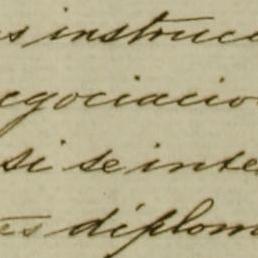 s instrucc
egociacio
si se inte
es diplom